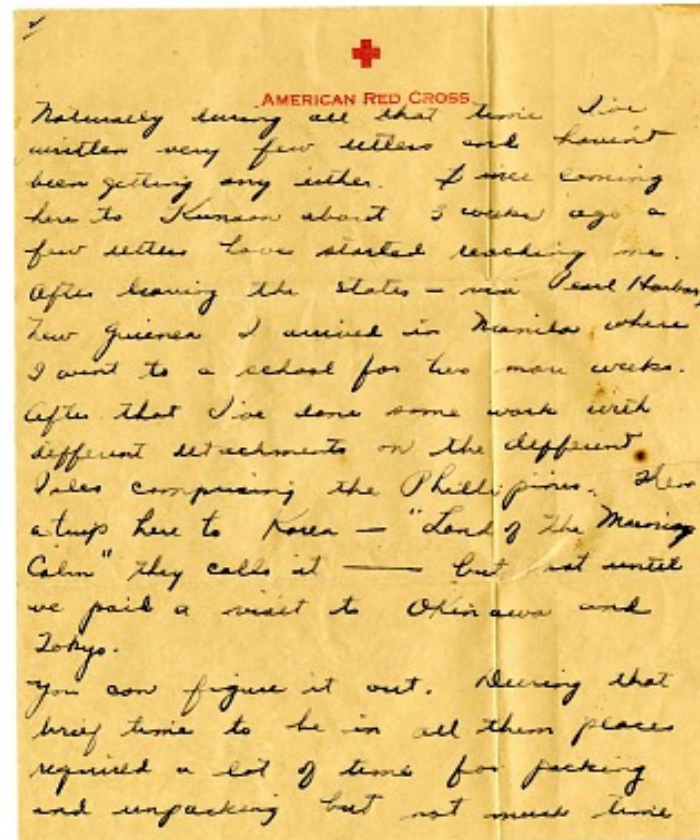 2
AMERICAN RED CROSS
Naturally during all that time I've
written very few letters and haven't
been getting any either. Since coming
here to Kunsan about 3 weeks ago a
few letters have started reaching me.
After leaving the States — via Pearl Harbor
New Guinea I arrived in Manila where
I went to a school for two more weeks.
After that I've done some work with
different detachments on the different
Isles comprising the Phillipines. Then
a trip here to Korea — "Land of The Morning
Calm" they calls it — but not until
we paid a visit to Okinawa and
Tokyo.
You can figure it out. During that
brief time to be in all them places
required a lot of time for packing
and unpacking but not much time